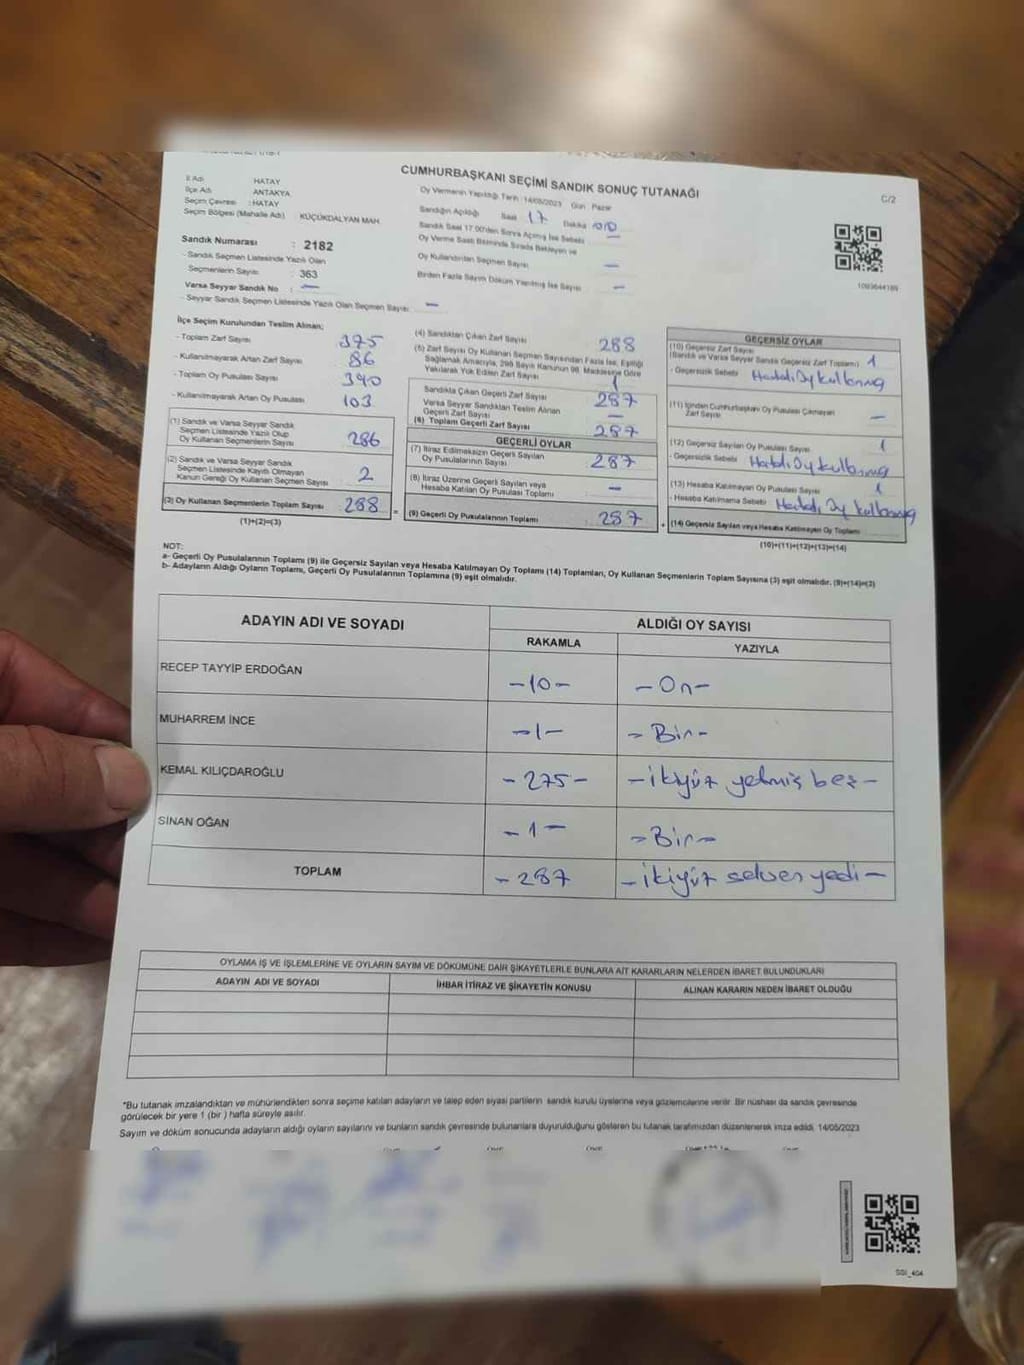 CUMHURBAŞKANI SEÇİMİ SANDIK SONUÇ TUTANAĞI
C/2
İl Adı HATAY
İlçe Adı ANTAKYA
Seçim Çevresi : HATAY
Seçim Bölgesi (Mahalle Adı) KÜÇÜKDALYAN MAH.
Sandık Numarası : 2182
- Sandık Seçmen Listesinde Yazılı Olan
Seçmenlerin Sayısı : 363
Varsa Seyyar Sandık No : —
- Seyyar Sandık Seçmen Listesinde Yazılı Olan Seçmen Sayısı : —
Oy Vermenin Yapıldığı Tarih :14/05/2023 Gün : Pazar
Sandığın Açıldığı Saat 17 Dakika 00
Sandık Saat 17.00'den Sonra Açılmış İse Sebebi —
Oy Verme Saati Bitiminde Sırada Bekleyen ve
Oy Kullandırılan Seçmen Sayısı —
Birden Fazla Sayım Döküm Yapılmış İse Sayısı —
1093644189
İlçe Seçim Kurulundan Teslim Alınan;
- Toplam Zarf Sayısı 375
- Kullanılmayarak Artan Zarf Sayısı 86
- Toplam Oy Pusulası Sayısı 390
- Kullanılmayarak Artan Oy Pusulası 103
(1) Sandık ve Varsa Seyyar Sandık
Seçmen Listesinde Yazılı Olup
Oy Kullanan Seçmenlerin Sayısı 286
(2) Sandık ve Varsa Seyyar Sandık
Seçmen Listesinde Kayıtlı Olmayan
Kanun Gereği Oy Kullanan Seçmen Sayısı 2
(3) Oy Kullanan Seçmenlerin Toplam Sayısı 288
(1)+(2)=(3)
=
(4) Sandıktan Çıkan Zarf Sayısı 288
(5) Zarf Sayısı Oy Kullanan Seçmen Sayısından Fazla İse, Eşitliği
Sağlamak Amacıyla, 298 Sayılı Kanunun 98. Maddesine Göre
Yakılarak Yok Edilen Zarf Sayısı 1
Sandıkta Çıkan Geçerli Zarf Sayısı 287
Varsa Seyyar Sandıktan Teslim Alınan
Geçerli Zarf Sayısı —
(6) Toplam Geçerli Zarf Sayısı 287
GEÇERLİ OYLAR
(7) İtiraz Edilmeksizin Geçerli Sayılan
Oy Pusulalarının Sayısı 287
(8) İtiraz Üzerine Geçerli Sayılan veya
Hesaba Katılan Oy Pusulası Toplamı —
(9) Geçerli Oy Pusulalarının Toplamı 287
+
GEÇERSİZ OYLAR
(10) Geçersiz Zarf Sayısı
(Sandık ve Varsa Seyyar Sandık Geçersiz Zarf Toplamı) 1
- Geçersizlik Sebebi Hatalı Oy kullanmış
(11) İçinden Cumhurbaşkanı Oy Pusulası Çıkmayan
Zarf Sayısı —
(12) Geçersiz Sayılan Oy Pusulası Sayısı 1
- Geçersizlik Sebebi Hatalı Oy kullanmış
(13) Hesaba Katılmayan Oy Pusulası Sayısı 1
- Hesaba Katılmama Sebebi Hatalı Oy kullanmış
(14) Geçersiz Sayılan veya Hesaba Katılmayan Oy Toplamı
(10)+(11)+(12)+(13)=(14)
NOT:
a- Geçerli Oy Pusulalarının Toplamı (9) ile Geçersiz Sayılan veya Hesaba Katılmayan Oy Toplamı (14) Toplamları, Oy Kullanan Seçmenlerin Toplam Sayısına (3) eşit olmalıdır. (9)+(14)=(3)
b- Adayların Aldığı Oyların Toplamı, Geçerli Oy Pusulalarının Toplamına (9) eşit olmalıdır.
ADAYIN ADI VE SOYADI
ALDIĞI OY SAYISI
RAKAMLA YAZIYLA
RECEP TAYYİP ERDOĞAN -10- -On-
MUHARREM İNCE -1- -Bir-
KEMAL KILIÇDAROĞLU -275- -ikiyüz yetmiş beş-
SİNAN OĞAN -1- -Bir-
TOPLAM -287 -ikiyüz seksen yedi-
OYLAMA İŞ VE İŞLEMLERİNE VE OYLARIN SAYIM VE DÖKÜMÜNE DAİR ŞİKAYETLERLE BUNLARA AİT KARARLARIN NELERDEN İBARET BULUNDUKLARI
ADAYIN ADI VE SOYADI İHBAR İTİRAZ VE ŞİKAYETİN KONUSU ALINAN KARARIN NEDEN İBARET OLDUĞU
*Bu tutanak imzalandıktan ve mühürlendikten sonra seçime katılan adayların ve talep eden siyasi partilerin sandık kurulu üyelerine veya gözlemcilerine verilir. Bir nüshası da sandık çevresinde
görülecek bir yere 1 (bir ) hafta süreyle asılır.
Sayım ve döküm sonucunda adayların aldığı oyların sayılarını ve bunların sandık çevresinde bulunanlara duyurulduğunu gösteren bu tutanak tarafımızdan düzenlenerek imza edildi. 14/05/2023
SSI_404